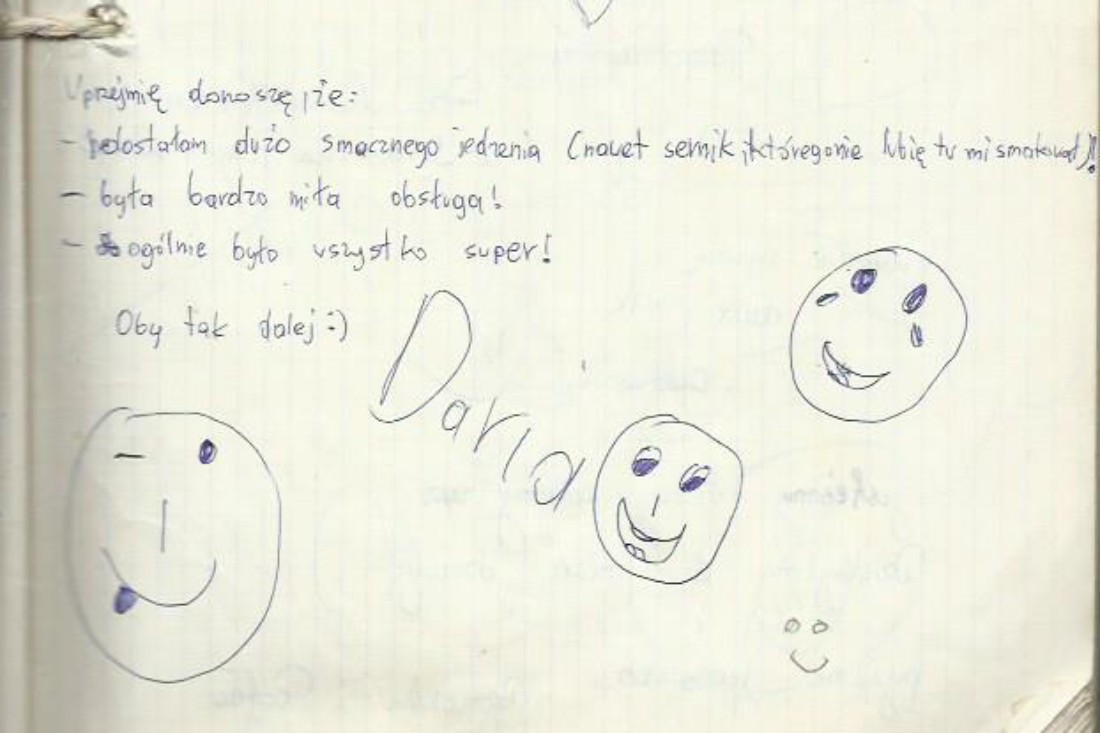 Uprejmię donoszę, że:
- dostałam dużo smacznego jedzenia (nawet sernik, którego nie lubię tu mi smakował)!
- była bardzo miła obsługa!
- ogólnie było wszystko super!
Oby tak dalej :)
Daria